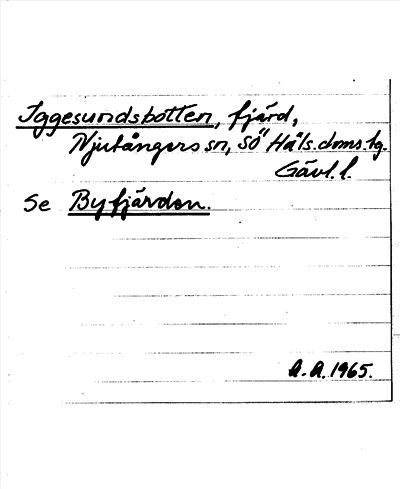 Iggesundsbotten, fjärd,
Njutångers sn, SÖ Häls. doms. tg.
Gävl. l.
Se Byfjärden.
A. A. 1965.